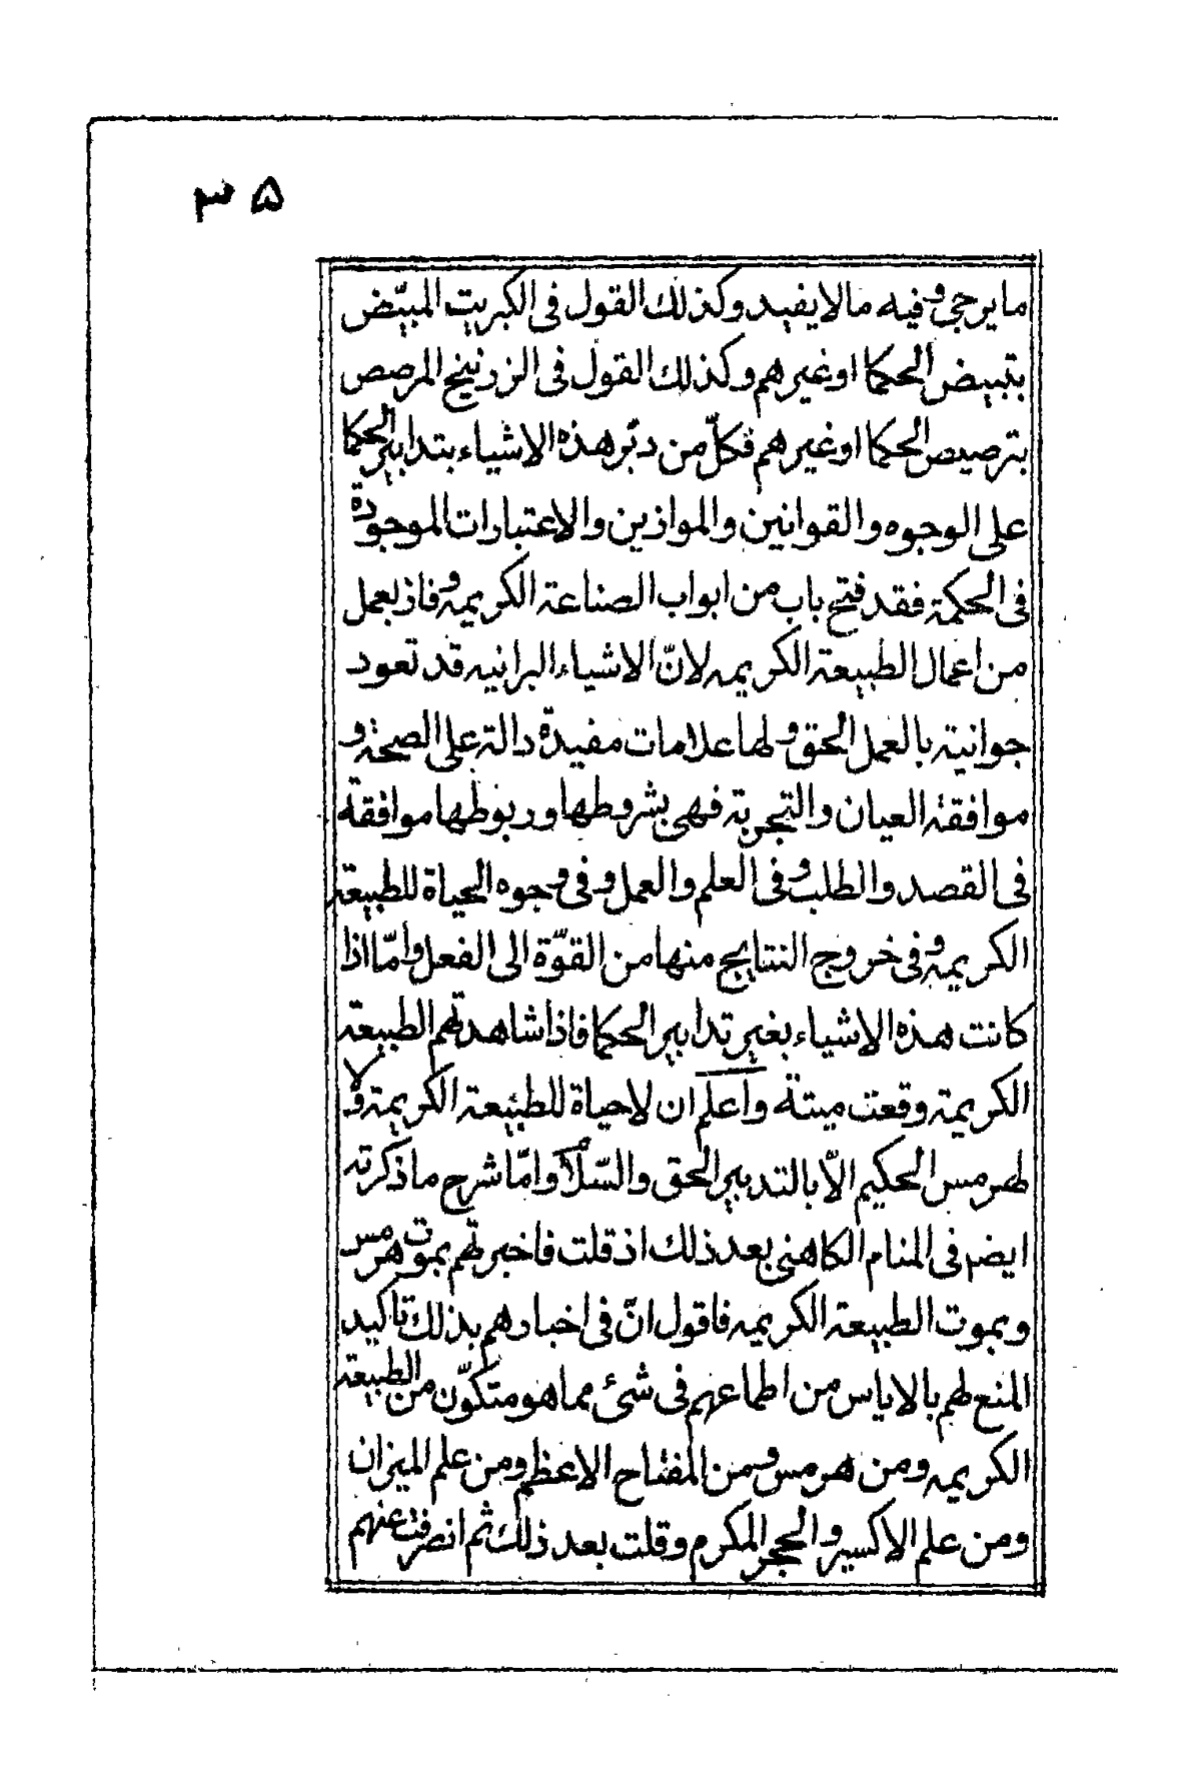 ۳۵
ما يرجى وفيه ما لا يفيد وكذلك القول فى الكبريت المبيّض
بتبييض الحكما او غيرهم وكذلك القول فى الزرنيخ المرصص
بترصيص الحكما او غيرهم فكلّ من دبّر هذه الاشياء بتدابير الحكما
على الوجوه والقوانين والموازين والاعتبارات الموجودة
فى الحكمة فقد فتح باب من ابواب الصناعة الكريمه وفاز بعمل
من اعمال الطبيعة الكريمه لانّ الاشياء البرانيه قد تعود
جوانية بالعمل الحق ولها علامات مفيدة دالة على الصحة و
موافقة العيان والتجربة فهى بشروطها وربوطها موافقة
فى القصد والطلب وفى العلم والعمل وفى وجوه الحياة للطبيعة
الكريمه وفى خروج النتايج منها من القوّة الى الفعل وامّا اذا
كانت هذه الاشياء بغير تدابير الحكما فاذا شاهدتهم الطبيعة
الكريمة وقعت ميتة واعلم ان لا حياة للطبيعة الكريمة ولا
لهرمس الحكيم الاّ بالتدبير الحق والسّلام وامّا شرح ما ذكرته
ايضم فى المنام الكاهنى بعد ذلك اذ قلت فاخبرتهم بموت هرمس
وبموت الطبيعة الكريمه فاقول انّ فى اخبارهم بذلك تاكيد
المنع لهم بالاياس من اطماعهم فى شئ مما هو متكوّن من الطبيعة
الكريمه ومن هرمس ومن المفتاح الاعظم ومن علم الميزان
ومن علم الاكسير والحجر المكرم وقلت بعد ذلك ثم انصرفت عنهم